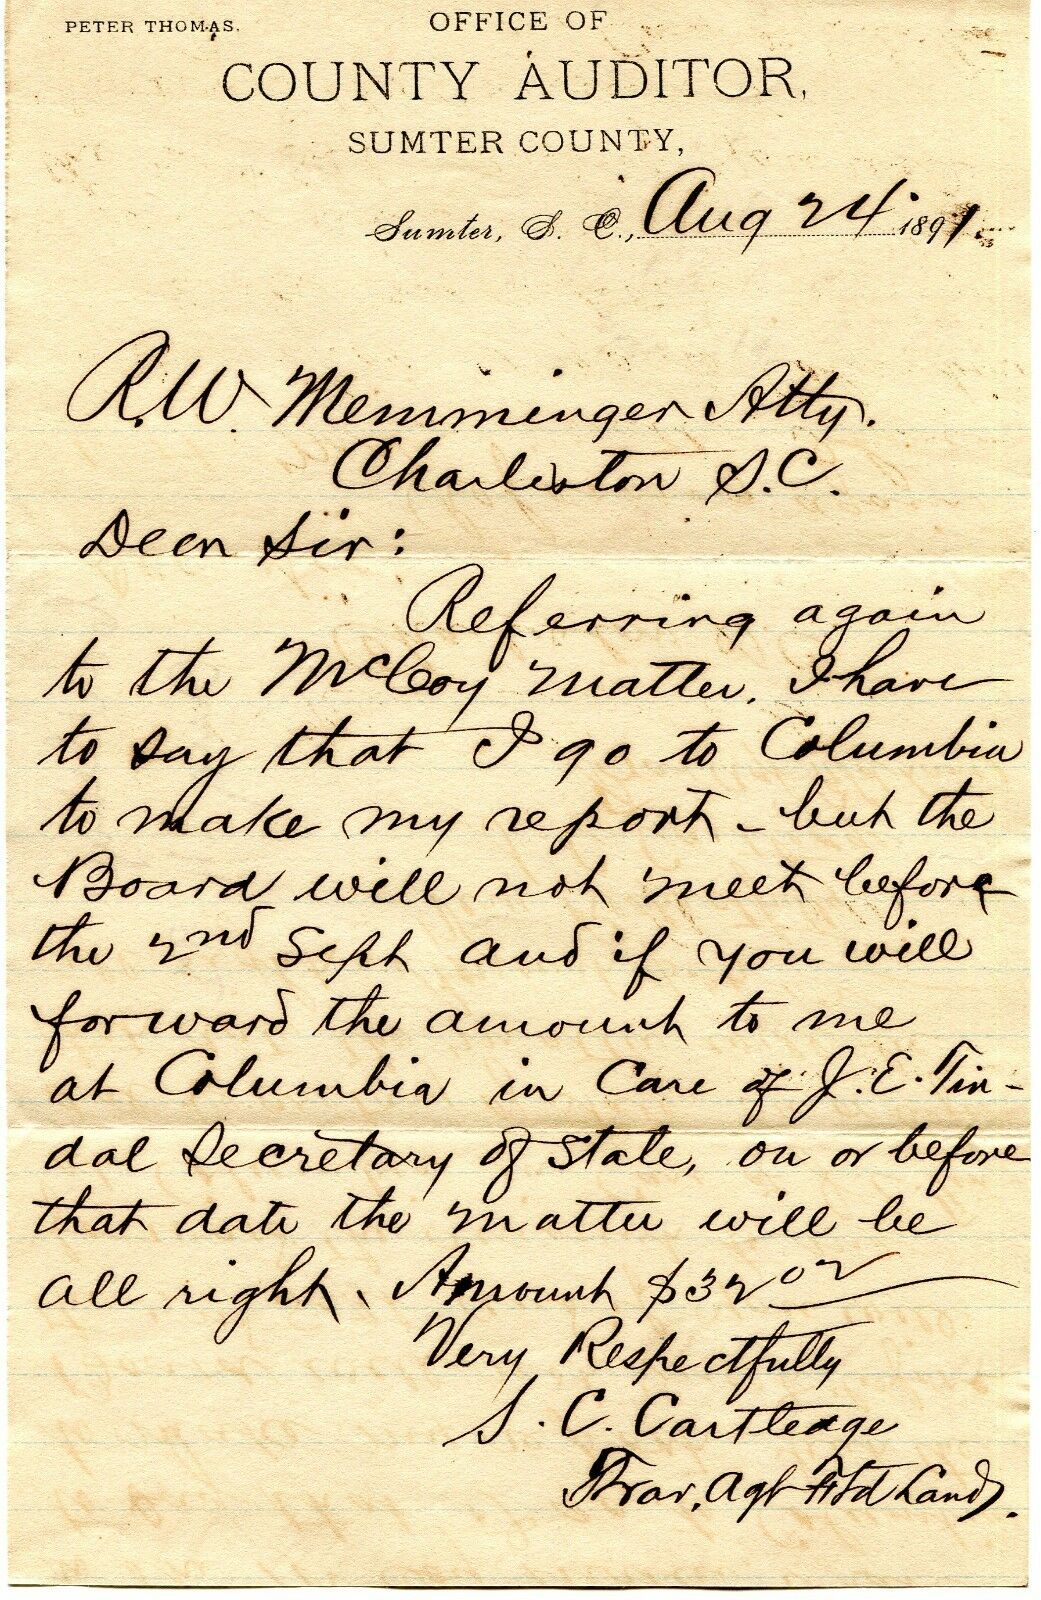 PETER THOMAS.
OFFICE OF
COUNTY AUDITOR,
SUMTER COUNTY,
Sumter, S. C., Aug 24 1891.
R. W. Memminger Atty.
Charleston S. C.
Dear Sir:
Referring again
to the McCoy matter. I have
to say that I go to Columbia
to make my report - but the
Board will not meet before
the 2nd Sept and if you will
forward the amount to me
at Columbia in Care of J. E. Tin-
dal Secretary of State, on or before
that date the matter will be
all right. Amount $32.02
Very Respectfully
S. C. Cartledge
Trav. Agt Ftd Lands.